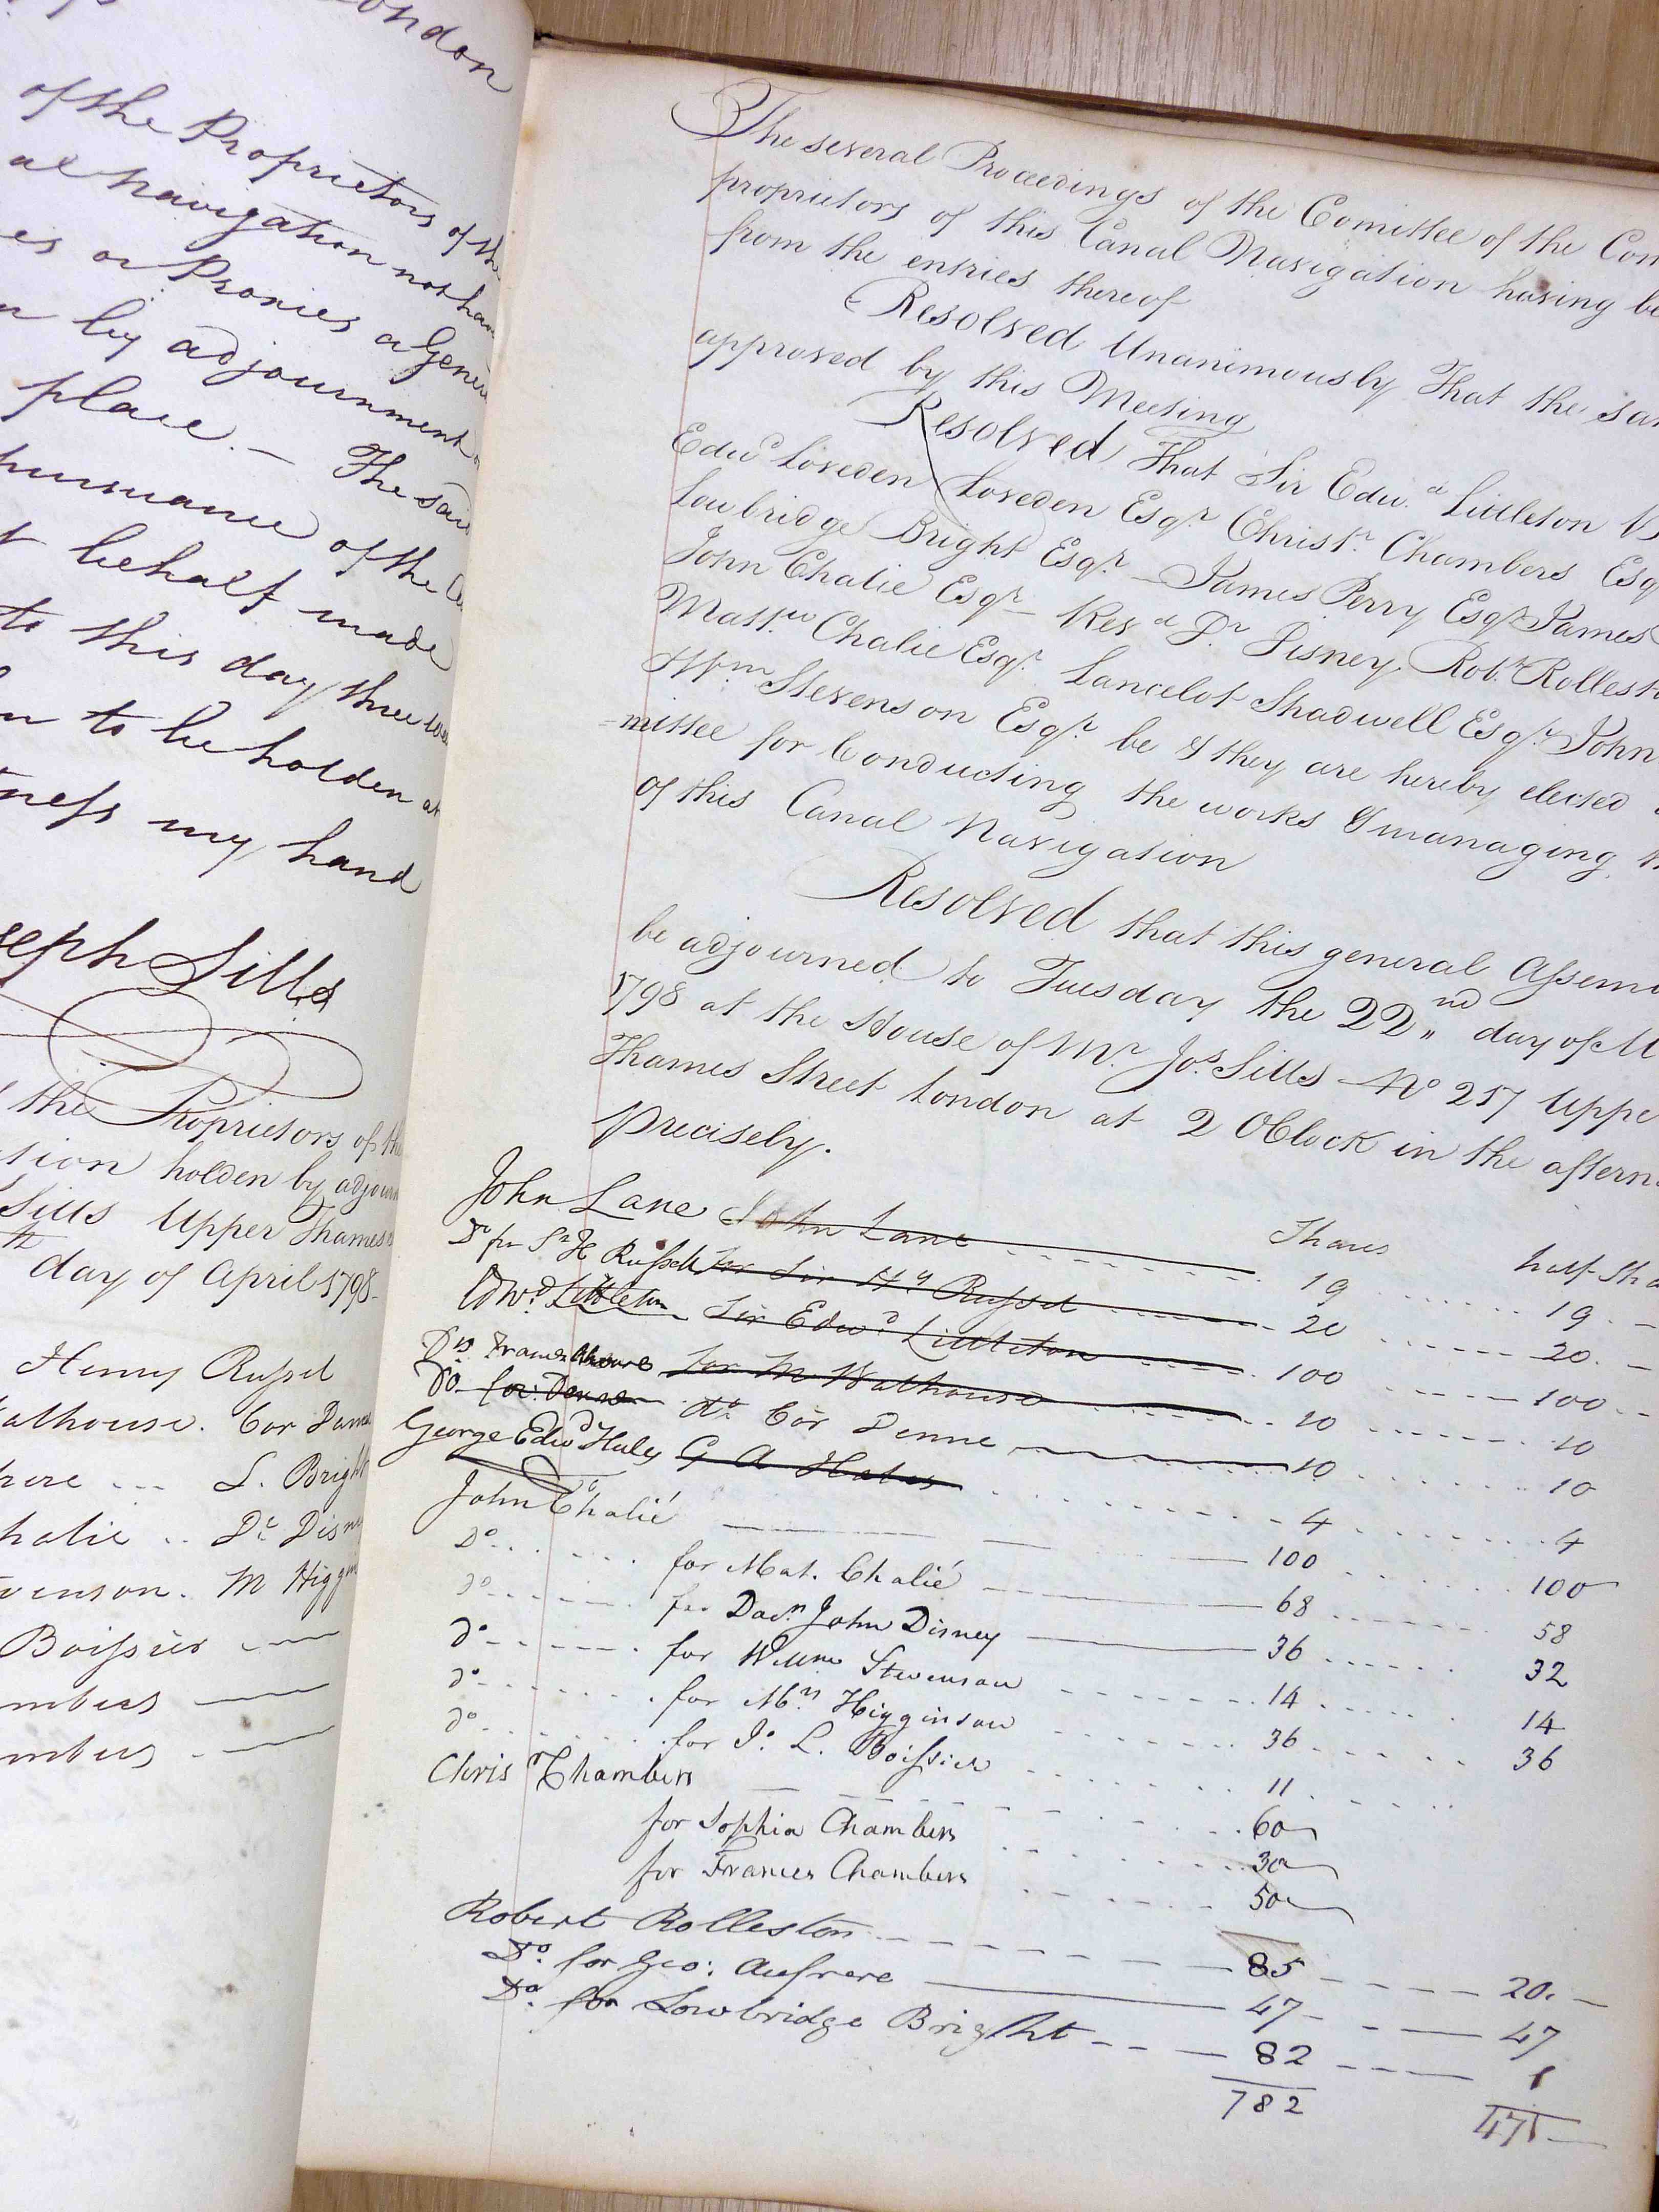 London
of the Proprietors of the
al navigation not hav
es or Proxies a Gene
n by adjournment
place. — The said
pursuance of the
t behalf made
to this day three
n to be holden at
ness my hand
seph Sills
the Proprietors of the
tion holden by adjourn
Sills Upper Thames
day of April 1798
Henry Russel
alhouse. Cor Dunne
here ... L. Bright
halie .. Dr Disney
venson. M Higgin
Boissier
mbers
mbers
The several Proceedings of the Comittee of the Com
proprietors of this Canal Navigation having be
from the entries thereof
Resolved Unanimously That the sam
approved by this Meeting
Resolved That Sir Edwd Littleton
Edwd Loveden Loveden Esqr Christr Chambers Esq
Lowbridge Bright Esqr James Perry Esqr James
John Chalie Esqr Revd Dr Disney Robt Rollest
Mattw Chalie Esqr Lancelot Shadwell Esqr John
Wm Stevenson Esqr be & they are hereby elected
=mittee for Conducting the works & managing
of this Canal Navigation
Resolved that this general Assem
be adjourned to Tuesday the 22nd day of M
1798 at the House of Mr. Jos. Sills No 257 Uppe
Thames Street London at 2 OClock in the aftern
Precisely.
Shares half Sha
John Lane John Lane 19 19
Do for Sr H Russell for Sir Hy Russel 20 20
Edwd Littleton Sir Edwd Littleton 100 100
Do Frances for M Walhouse 10 10
Do for Do Cor Dunne 10 10
George Edwd Hales G A Hales 4 4
John Chalié 100 100
Do for Mat. Chalié 68 58
do for Docr John Disney 36 32
do for Willm Stevenson 14 14
do for Mrs Higginson 36 36
do for Jo L. Boissier 11
Chrisr Chambers 60
for Sophia Chambers 30
for Frances Chambers 50
Robert Rolleston 85 20
Do. for Geo: Aufrere 47 47
Do. for Lowbridge Bright 82 1
782 471